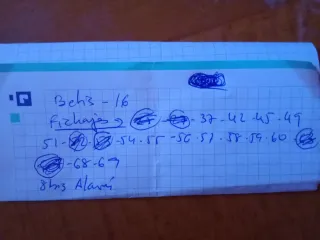 Betis - 16
Fichajes 9 37 - 42 - 45 - 49
51 - 54 - 55 - 56 - 57 - 58 - 59 - 60 -
- 68 - 69
8bis Alavés